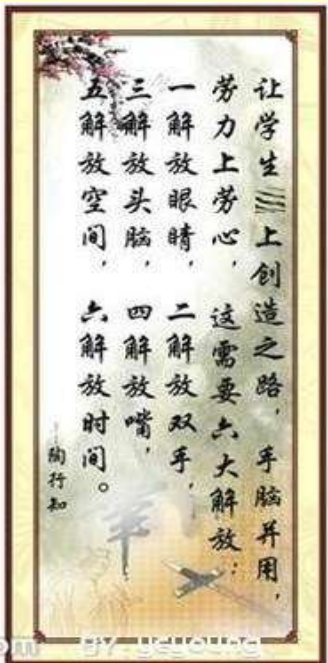 让学生上创造之路，手脑并用，
劳力上劳心，这需要六大解放：
一解放眼睛，二解放双手，
三解放头脑，四解放嘴，
五解放空间，六解放时间。
陶行知
om BY:ysyoung